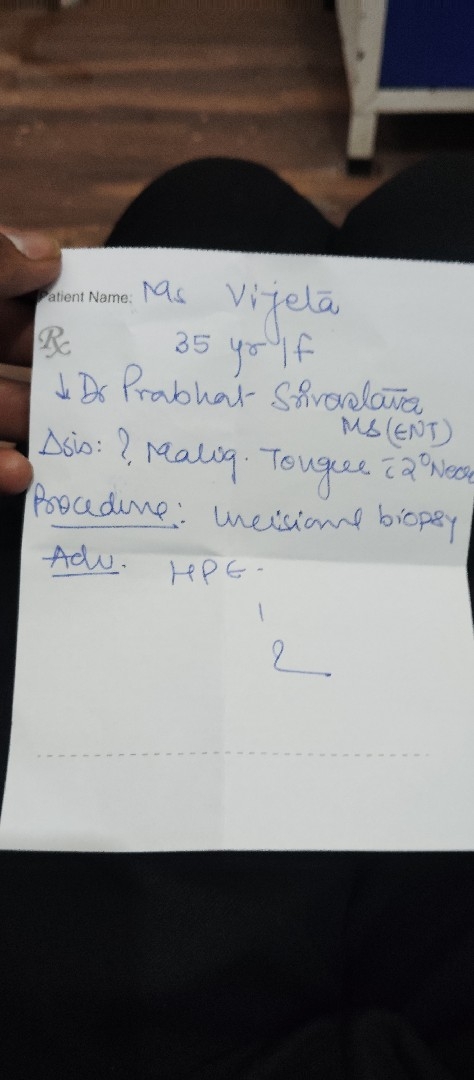 Patient Name: Ms Vijetā
Rx 35 yr/f
↓ Dr Prabhat Srivastava
MS (ENT)
Δsis: ? Malig. Tongue c̄ 2° Neck
Procedure: Incisional biopsy
Adv. HPE.